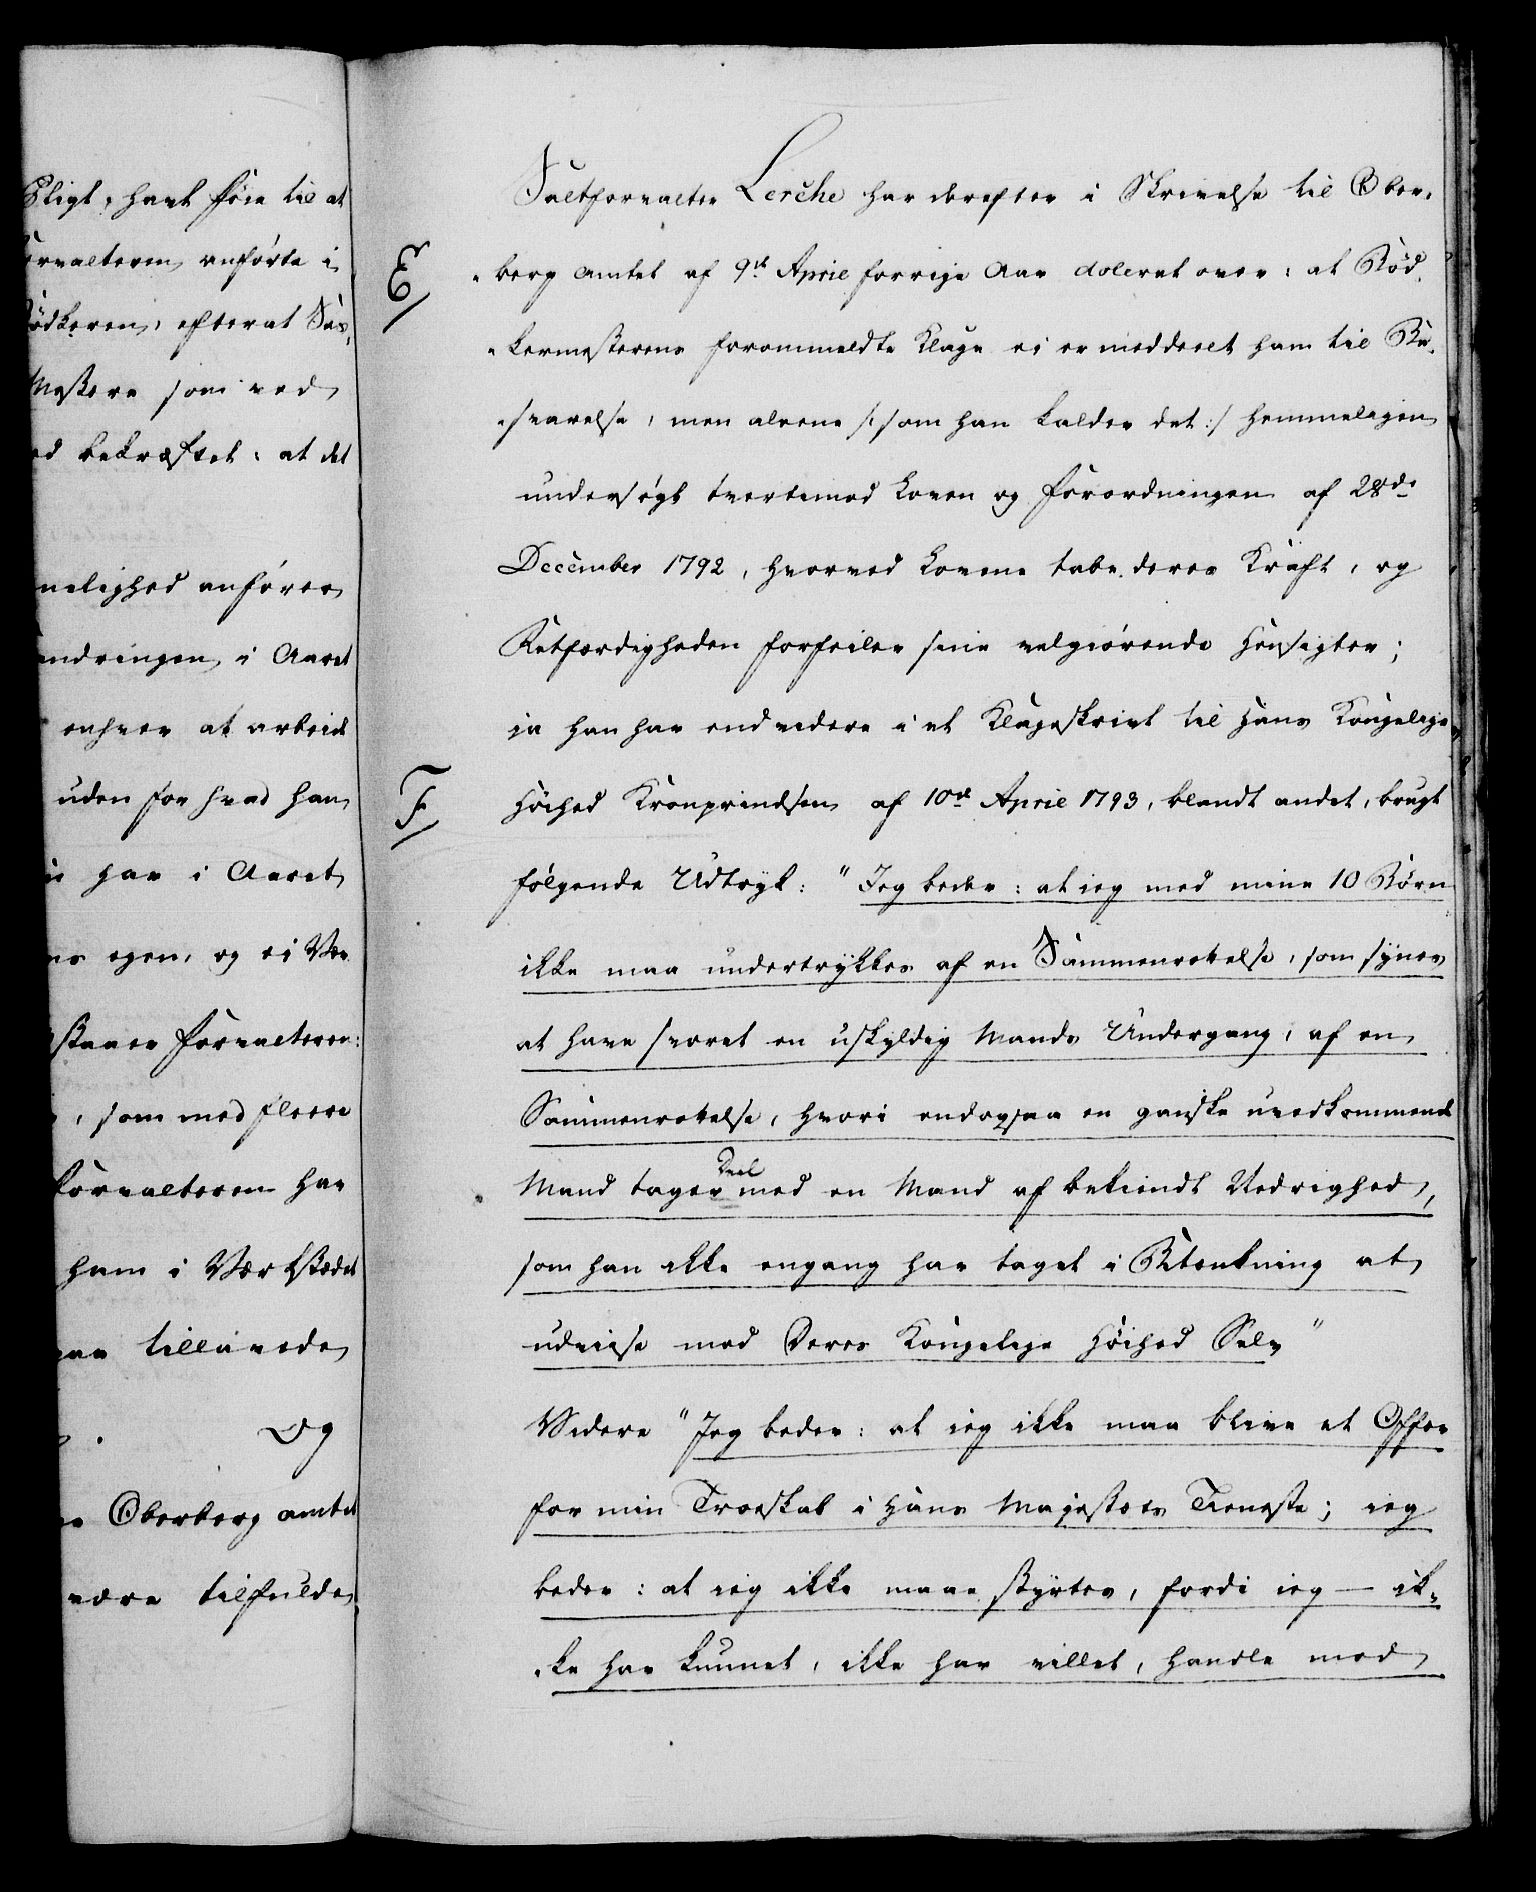 Pligt, havt föie til at
orvalteren anförte i
ödkeren, efterat Sas,
Mestere som ved
ed bekræftet: at det
nelighed anföres
andringen i Aaret
enhver at arbeide
uden for hvad han
har i Aaret
ns egen, og ei Ver
staaer Forvalteren:
, som med fleere
Forvalteren har
ham i Værkstedet
tillavede
Og
Oberberg amtet
være tilfulde
Saltforvalter Lerche har derefter i Skrivelse til Ober-
E/
-berg Amtet af 9de April forrige Aar doleret over: at Bød-
-kermesterens forommeldte Klage ei er meddeelt ham til Be-
-svarelse, men aleene /: som han kalder det :/ hemmeligen
undersögt tvertimod Loven og Forordningen af 28de
December 1792, hvorved Lovene tabe deres Kraft, og
Retfærdigheden forfeiler sine velgiörende Hensigter;
ja han har end videre i et Klageskrivt til Hans Kongelige
F/
Höihed Kronprindsen af 10de April 1793, blandt andet, brugt
fölgende Udtryk: "Jeg beder: at ieg med mine 10 Börn
ikke maa undertrykkes af en Sammenrottelse, som synes
at have svoret en uskyldig Mands Undergang, af en
Sammenrottelse, hvori endogsaa en ganske uvedkommende
Mand tager Deel med en Mand af bekiendt Nedrighed,
som han ikke engang har taget i Betenkning at
udviise mod Deres Kongelige Höihed Selv"
Videre "Jeg beder: at ieg ikke maa blive et Offer
for min Troeskab i Hans Majestæts Tieneste; ieg
beder: at ieg ikke maae styrtes, fordi ieg — ik-
-ke har kunnet, ikke har villet, handle mod